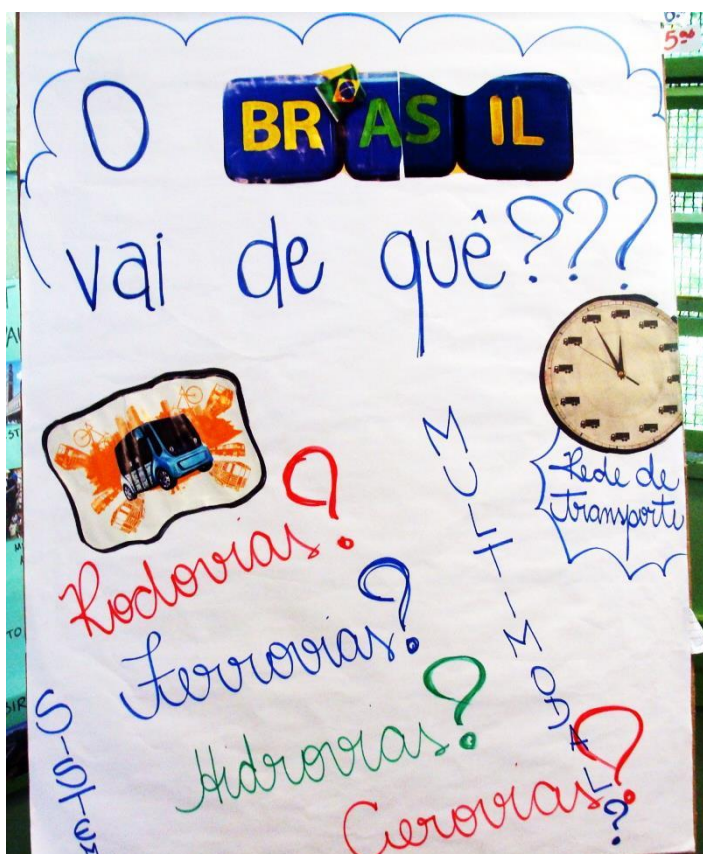 O BRASIL
vai de quê???
Rede de
Transporte
MULTIMODAL?
Rodovias?
Ferrovias?
Hidrovias?
Aerovias?
SISTEM
5ªs